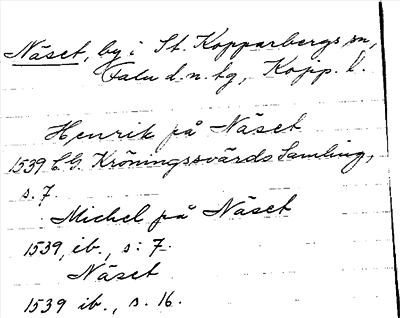 Näset, by i St. Kopparbergs sn,
Falu d. n. tg, Kopp. l.
Henrik på Näset
1539 C.G. Kröningssvärds Samling,
s. 7.
Michel på Näset
1539, ib., s: 7.
Näset
1539 ib., s. 16.